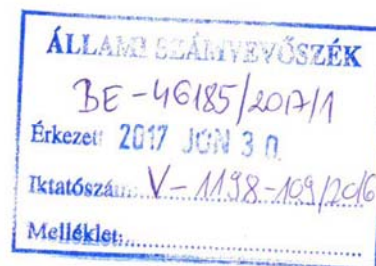 ÁLLAMI SZÁMVEVŐSZÉK
BE-46185/2017/1
Érkezett 2017 JÚN 30.
Iktatószám: V-1198-109/2016
Melléklet: